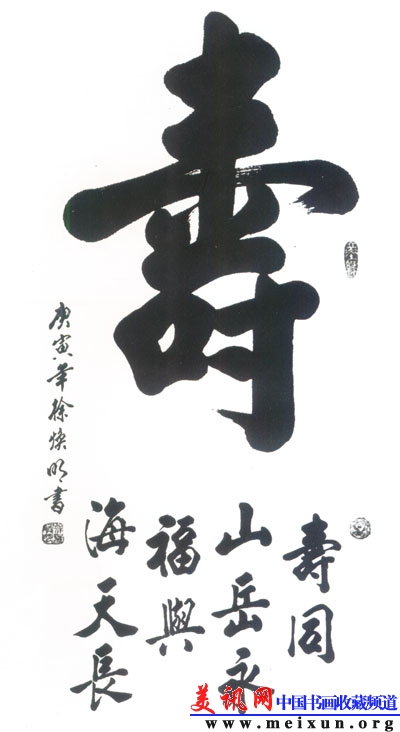 壽
壽同
山岳永
福與
海天長
庚寅年徐焕明書
美讯网 中国书画收藏频道
www.meixun.org